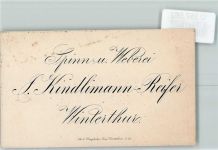 Spinn- u. Weberei
J. Kindlimann-Reifer
Winterthur.